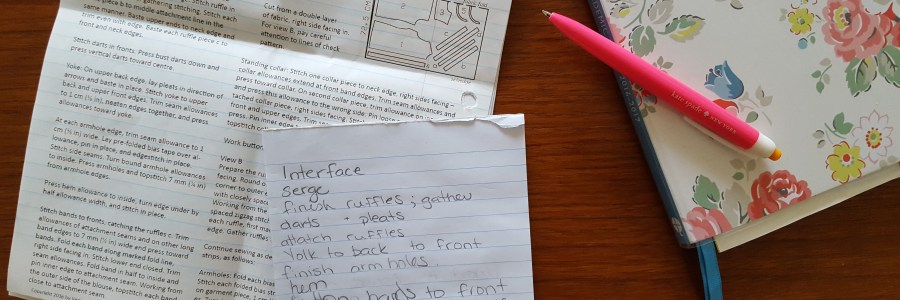 of gathering stitching. Stitch each
piece b to middle attachment line in the
same manner. Baste upper ends to neck edge and
trim even with edge. Baste each ruffle piece c to
front and neck edges.
Stitch darts in fronts. Press bust darts down and
press vertical darts toward centre.
Yoke: On upper back edge, lay pleats in direction of
arrows and baste in place. Stitch yoke to upper
back and upper front edges. Trim seam allowances
to 1 cm (⅜ in), neaten edges together, and press
allowances toward yoke.
At each armhole edge, trim seam allowance to 1
cm (⅜ in) wide. Lay pre-folded bias tape over al-
lowance, pin in place, and edgestitch in place.
Stitch side seams. Turn bound armhole allowances
to inside. Press armholes and topstitch 7 mm (¼ in)
from armhole edges.
Press hem allowance to inside, turn edge under by
half allowance width, and stitch in place.
Stitch bands to fronts, catching the ruffles c. Trim
allowances of attachment seams and on other long
band edges to 7 mm (¼ in) wide and press toward
bands. Fold each band along marked fold line,
right side facing in. Stitch lower end closed. Trim
seam allowances. Fold band in half to inside and
pin inner edge to attachment seam. Working from
the outer side of the blouse, topstitch each band
close to attachment seam.
Cut from a double layer
of fabric, right side facing in.
For view B, pay careful
attention to lines of check
pattern.
Standing collar: Stitch one collar piece to neck edge, right sides facing –
collar allowances extend at front band edges. Trim seam allowances and
press toward collar. On second collar piece, trim allowance on
and press this allowance to the wrong side. Pin
tached collar piece, right sides facing.
front and upper edges. Trim
press. Pin inner edge
topstitch
Work button
View B
Prepare the ru
facing. Round o
corner to outer
with closely space
Working from the
spaced zigzag stitch
each ruffle, first ma
edge. Gather ruffles
Continue sewing as de
strips, as follows:
Armholes: Fold each bias
Stitch each folded bias str
on garment piece, 1 cm
Interface
serge
finish ruffles ; gather
darts + pleats
attatch ruffles
Yolk to back to front
finish armholes.
hem
bands to front